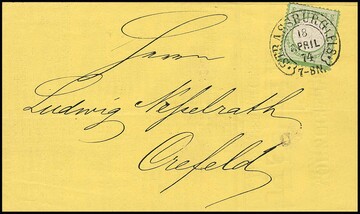 STRASSBURG I/ELS.
18
APRIL
74
7-8N.
Herrn
Ludwig Nesselrath
Crefeld